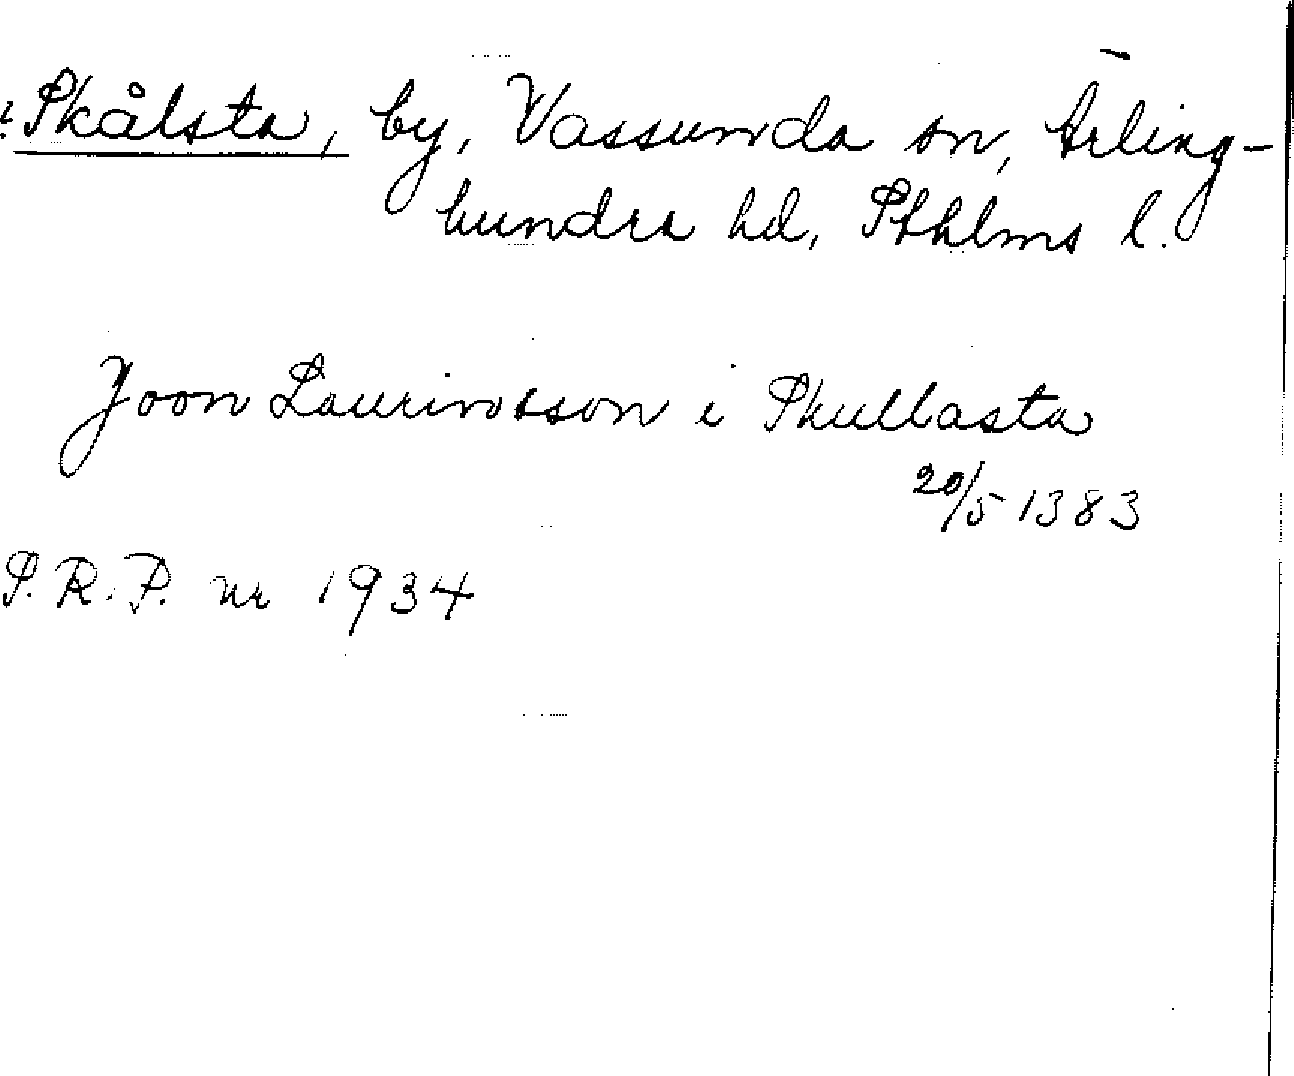 Skålsta, by, Vassunda sn, Ärling-
hundra hd, Sthlms l.
Joon Laurinsson i Skullasta
20/5 1383
S.R.P. nr 1934